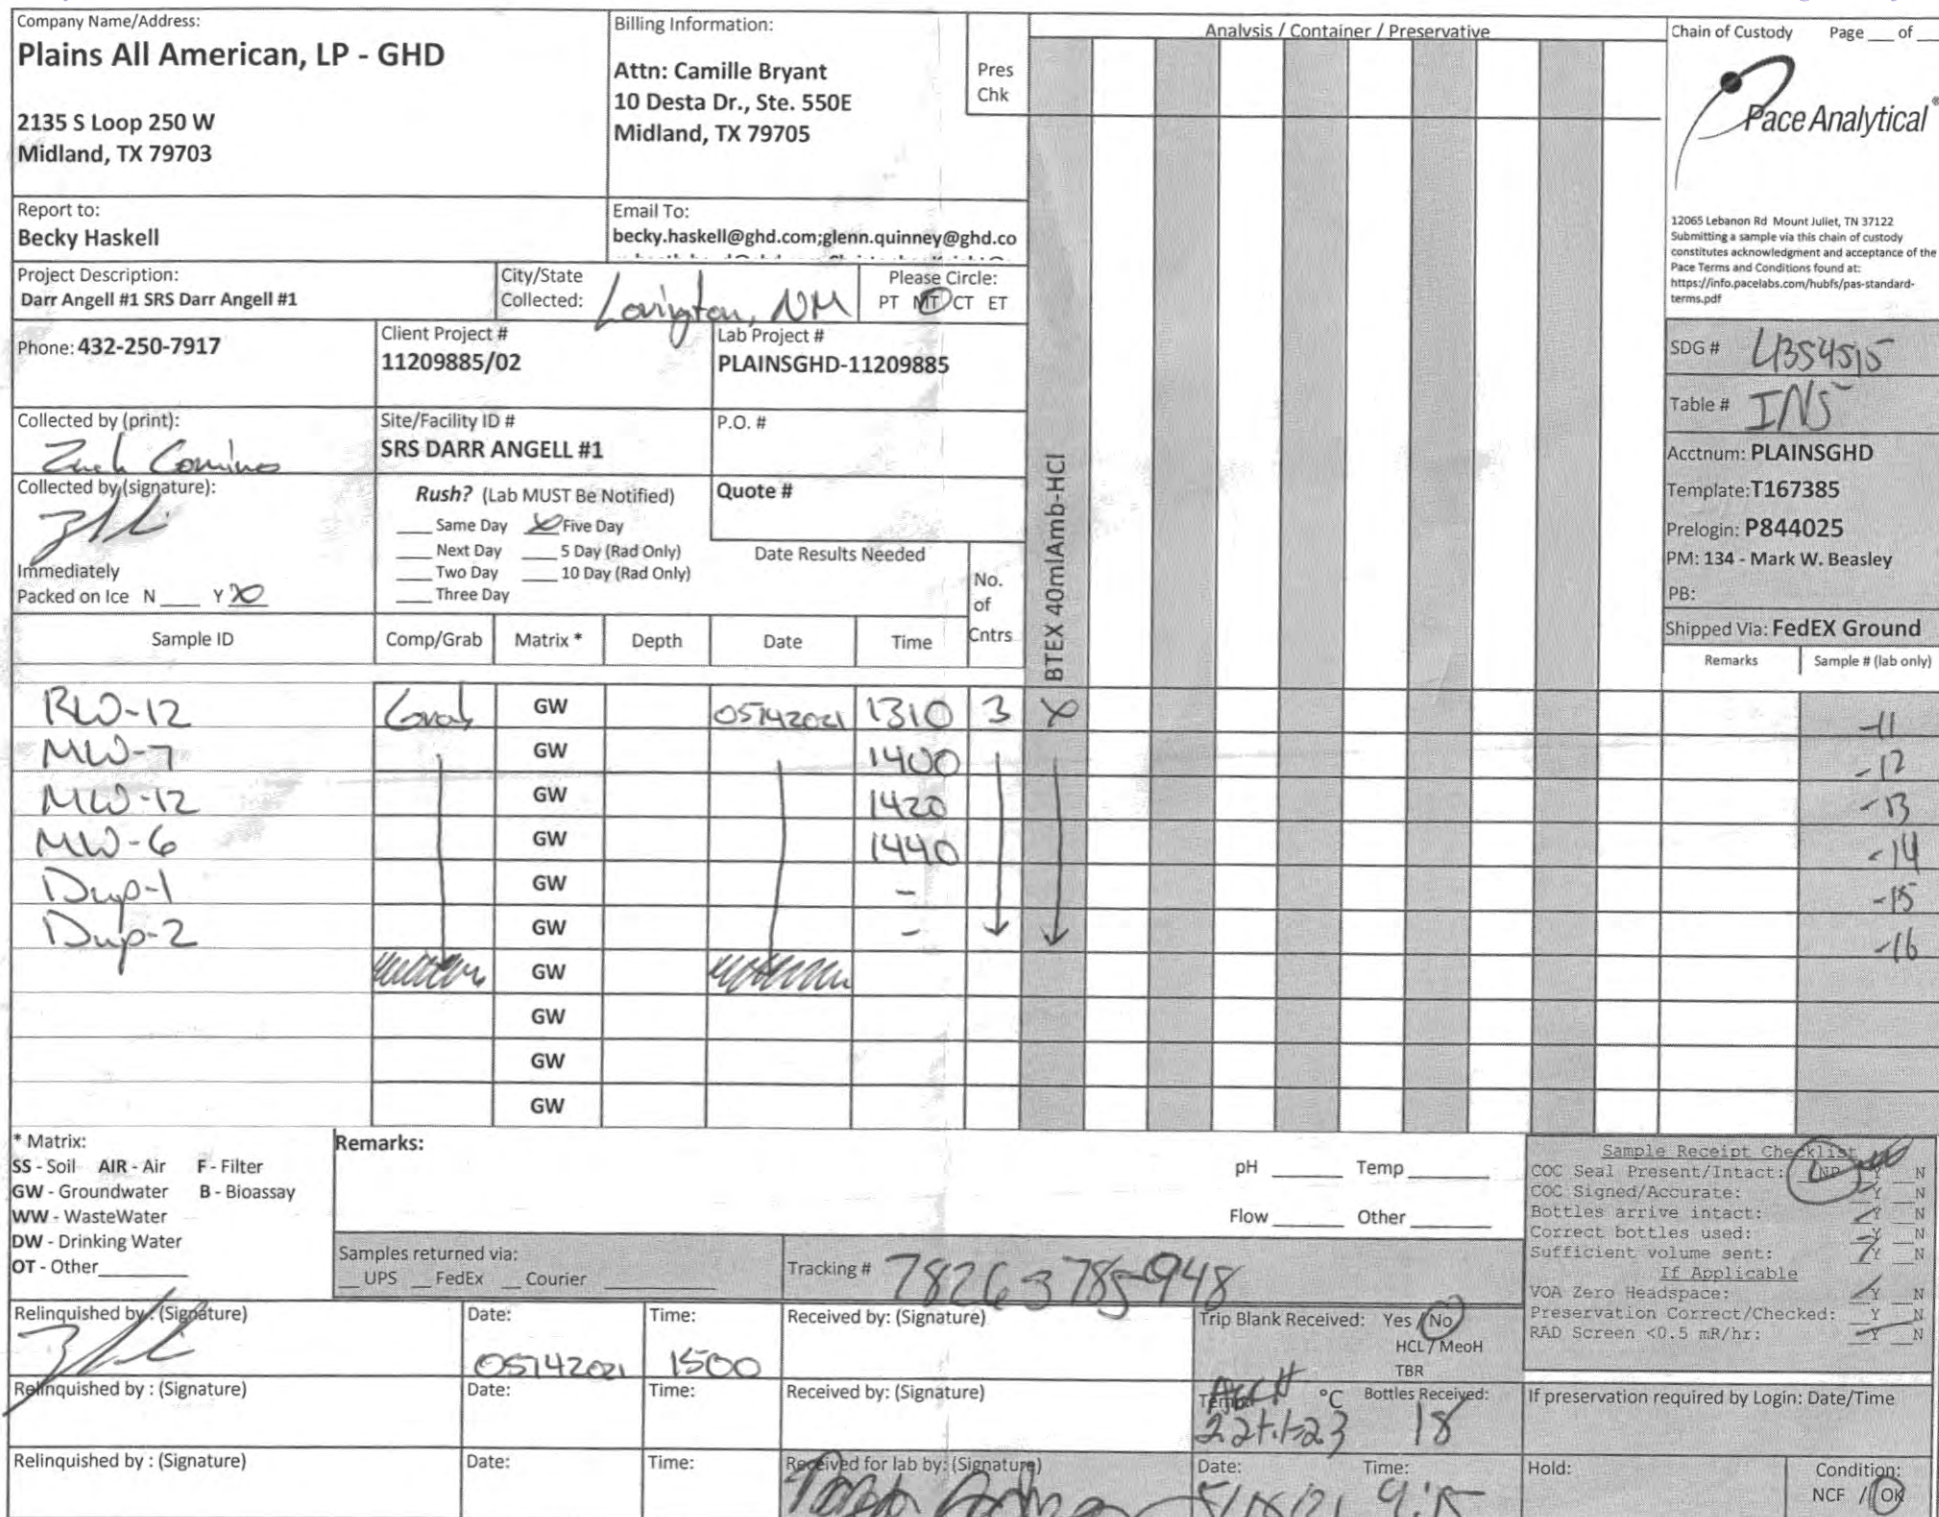 Company Name/Address:
Plains All American, LP - GHD
2135 S Loop 250 W
Midland, TX 79703
Billing Information:
Attn: Camille Bryant
10 Desta Dr., Ste. 550E
Midland, TX 79705
Pres
Chk
Analysis / Container / Preservative
Chain of Custody Page ___ of ___
Pace Analytical®
12065 Lebanon Rd Mount Juliet, TN 37122
Submitting a sample via this chain of custody
constitutes acknowledgment and acceptance of the
Pace Terms and Conditions found at:
https://info.pacelabs.com/hubfs/pas-standard-
terms.pdf
Report to:
Becky Haskell
Email To:
becky.haskell@ghd.com;glenn.quinney@ghd.co
Project Description:
Darr Angell #1 SRS Darr Angell #1
City/State
Collected: Lovington, NM
Please Circle:
PT MT CT ET
Phone: 432-250-7917
Client Project #
11209885/02
Lab Project #
PLAINSGHD-11209885
SDG # L1354515
Table # INS
Acctnum: PLAINSGHD
Template:T167385
Prelogin: P844025
PM: 134 - Mark W. Beasley
PB:
Shipped Via: FedEX Ground
Remarks Sample # (lab only)
Collected by (print):
Zach Comino
Site/Facility ID #
SRS DARR ANGELL #1
P.O. #
Collected by (signature):
Rush? (Lab MUST Be Notified)
___ Same Day X Five Day
___ Next Day ___ 5 Day (Rad Only)
___ Two Day ___ 10 Day (Rad Only)
___ Three Day
Quote #
Date Results Needed
Immediately
Packed on Ice N ___ Y X
No.
of
Cntrs
BTEX 40mlAmb-HCl
Sample ID Comp/Grab Matrix * Depth Date Time
RW-12 Grab GW 05142021 1310 3 X -11
MW-7 GW 1400 -12
MW-12 GW 1420 -13
MW-6 GW 1440 -14
Dup-1 GW - -15
Dup-2 GW - -16
GW
GW
GW
GW
* Matrix:
SS - Soil AIR - Air F - Filter
GW - Groundwater B - Bioassay
WW - WasteWater
DW - Drinking Water
OT - Other
Remarks:
pH ___ Temp ___
Flow ___ Other ___
Samples returned via:
__ UPS __ FedEx __ Courier
Tracking # 78263785948
Sample Receipt Checklist
COC Seal Present/Intact: NP Y N
COC Signed/Accurate: Y N
Bottles arrive intact: Y N
Correct bottles used: Y N
Sufficient volume sent: Y N
If Applicable
VOA Zero Headspace: Y N
Preservation Correct/Checked: Y N
RAD Screen <0.5 mR/hr: Y N
Relinquished by : (Signature)
Date:
05142021
Time:
1500
Received by: (Signature)
Trip Blank Received: Yes / No
HCL / MeoH
TBR
Relinquished by : (Signature)
Date:
Time:
Received by: (Signature)
Temp: °C
2.2+.1=2.3
Bottles Received:
18
If preservation required by Login: Date/Time
Relinquished by : (Signature)
Date:
Time:
Received for lab by: (Signature)
Date:
Time:
9:15
Hold:
Condition:
NCF / OK